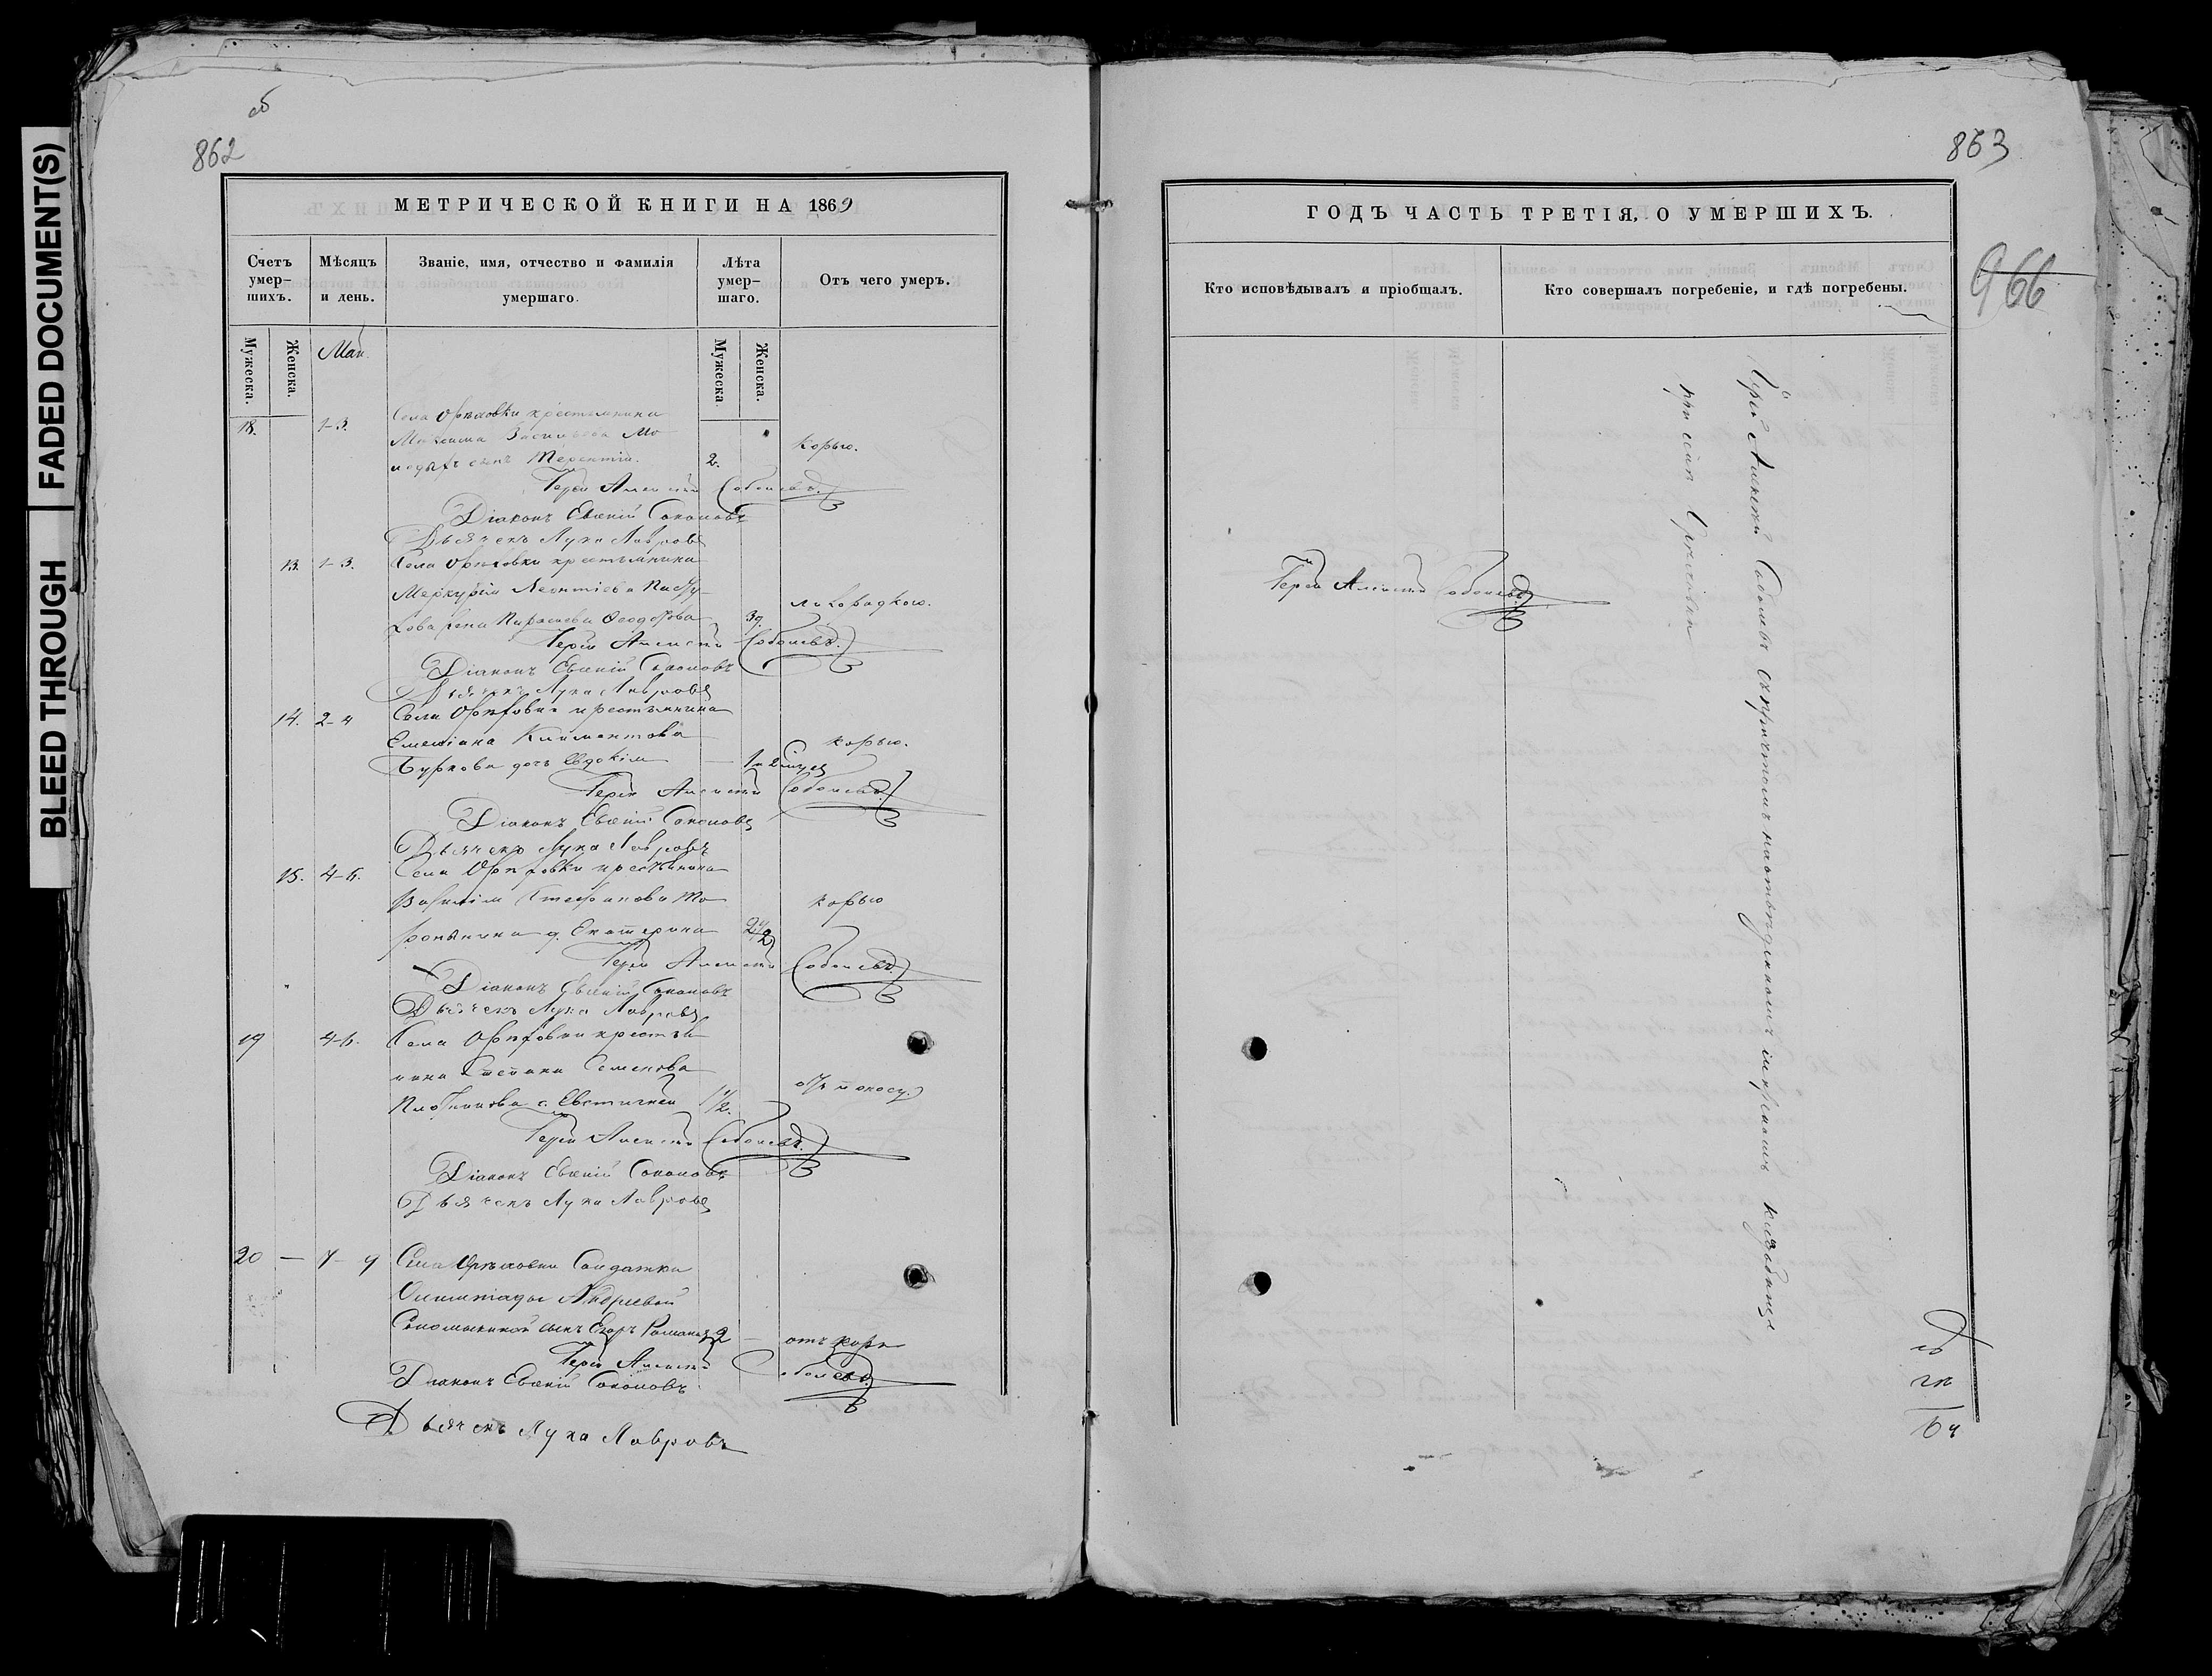 FADED DOCUMENT(S)
BLEED THROUGH
об
862
МЕТРИЧЕСКОЙ КНИГИ НА 1869
Счетъ умер-шихъ.
Мѣсяцъ и день.
Званіе, имя, отчество и фамилія умершаго.
Лѣта умер-шаго.
Отъ чего умеръ.
Мужеска.
Женска.
Май
Мужеска
Женска.
18. 1-3. Села Орѣховки крестьянина
Максима Васильева Мо-
сынъ Терентій. 2. Корью.
Іерей Алексѣй Соболевъ.
Діаконъ Евгеній Соколовъ
Дьячекъ Лука Лавровъ
13. 1-3. Села Орѣховки крестьянина
Меркурія Леонтіева
жена Параскева Феодорова 39. лихорадкою.
Іерей Алексѣй Соболевъ.
Діаконъ Евгеній Соколовъ
Дьячекъ Лука Лавровъ
14. 2-4 Села Орѣховки крестьянина
Емеліана Климентова корью.
Буркова дочь Евдокія
Іерей Алексѣй Соболевъ
Діаконъ Евгеній Соколовъ
Дьячекъ Лука Лавровъ
15. 4-6. Села Орѣховки крестьянина
Василія Стефанова корью
д. Екатерина
Іерей Алексѣй Соболевъ.
Діаконъ Евгеній Соколовъ
Дьячекъ Лука Лавровъ
19 4-6. Села Орѣховки крестья-
нина Степана Семенова
Плотникова с. Евстигней 1 1/2. отъ поносу.
Іерей Алексѣй Соболевъ.
Діаконъ Евгеній Соколовъ
Дьячекъ Лука Лавровъ
20 — 7-9 Села Орѣховки Солдатки
Олимпіады Андреевой
сынъ Егоръ Романовъ 2 — отъ кори
Іерей Алексѣй Соболевъ
Діаконъ Евгеній Соколовъ
Дьячекъ Лука Лавровъ
863
ГОДЪ ЧАСТЬ ТРЕТІЯ, О УМЕРШИХЪ.
966
Кто исповѣдывалъ и пріобщалъ.
Кто совершалъ погребеніе, и гдѣ погребены.
Іерей Алексѣй Соболевъ
Іерей Алексѣй Соболевъ съ причтомъ на отведенномъ мірскомъ кладбищѣ
при селѣ Орѣховкѣ